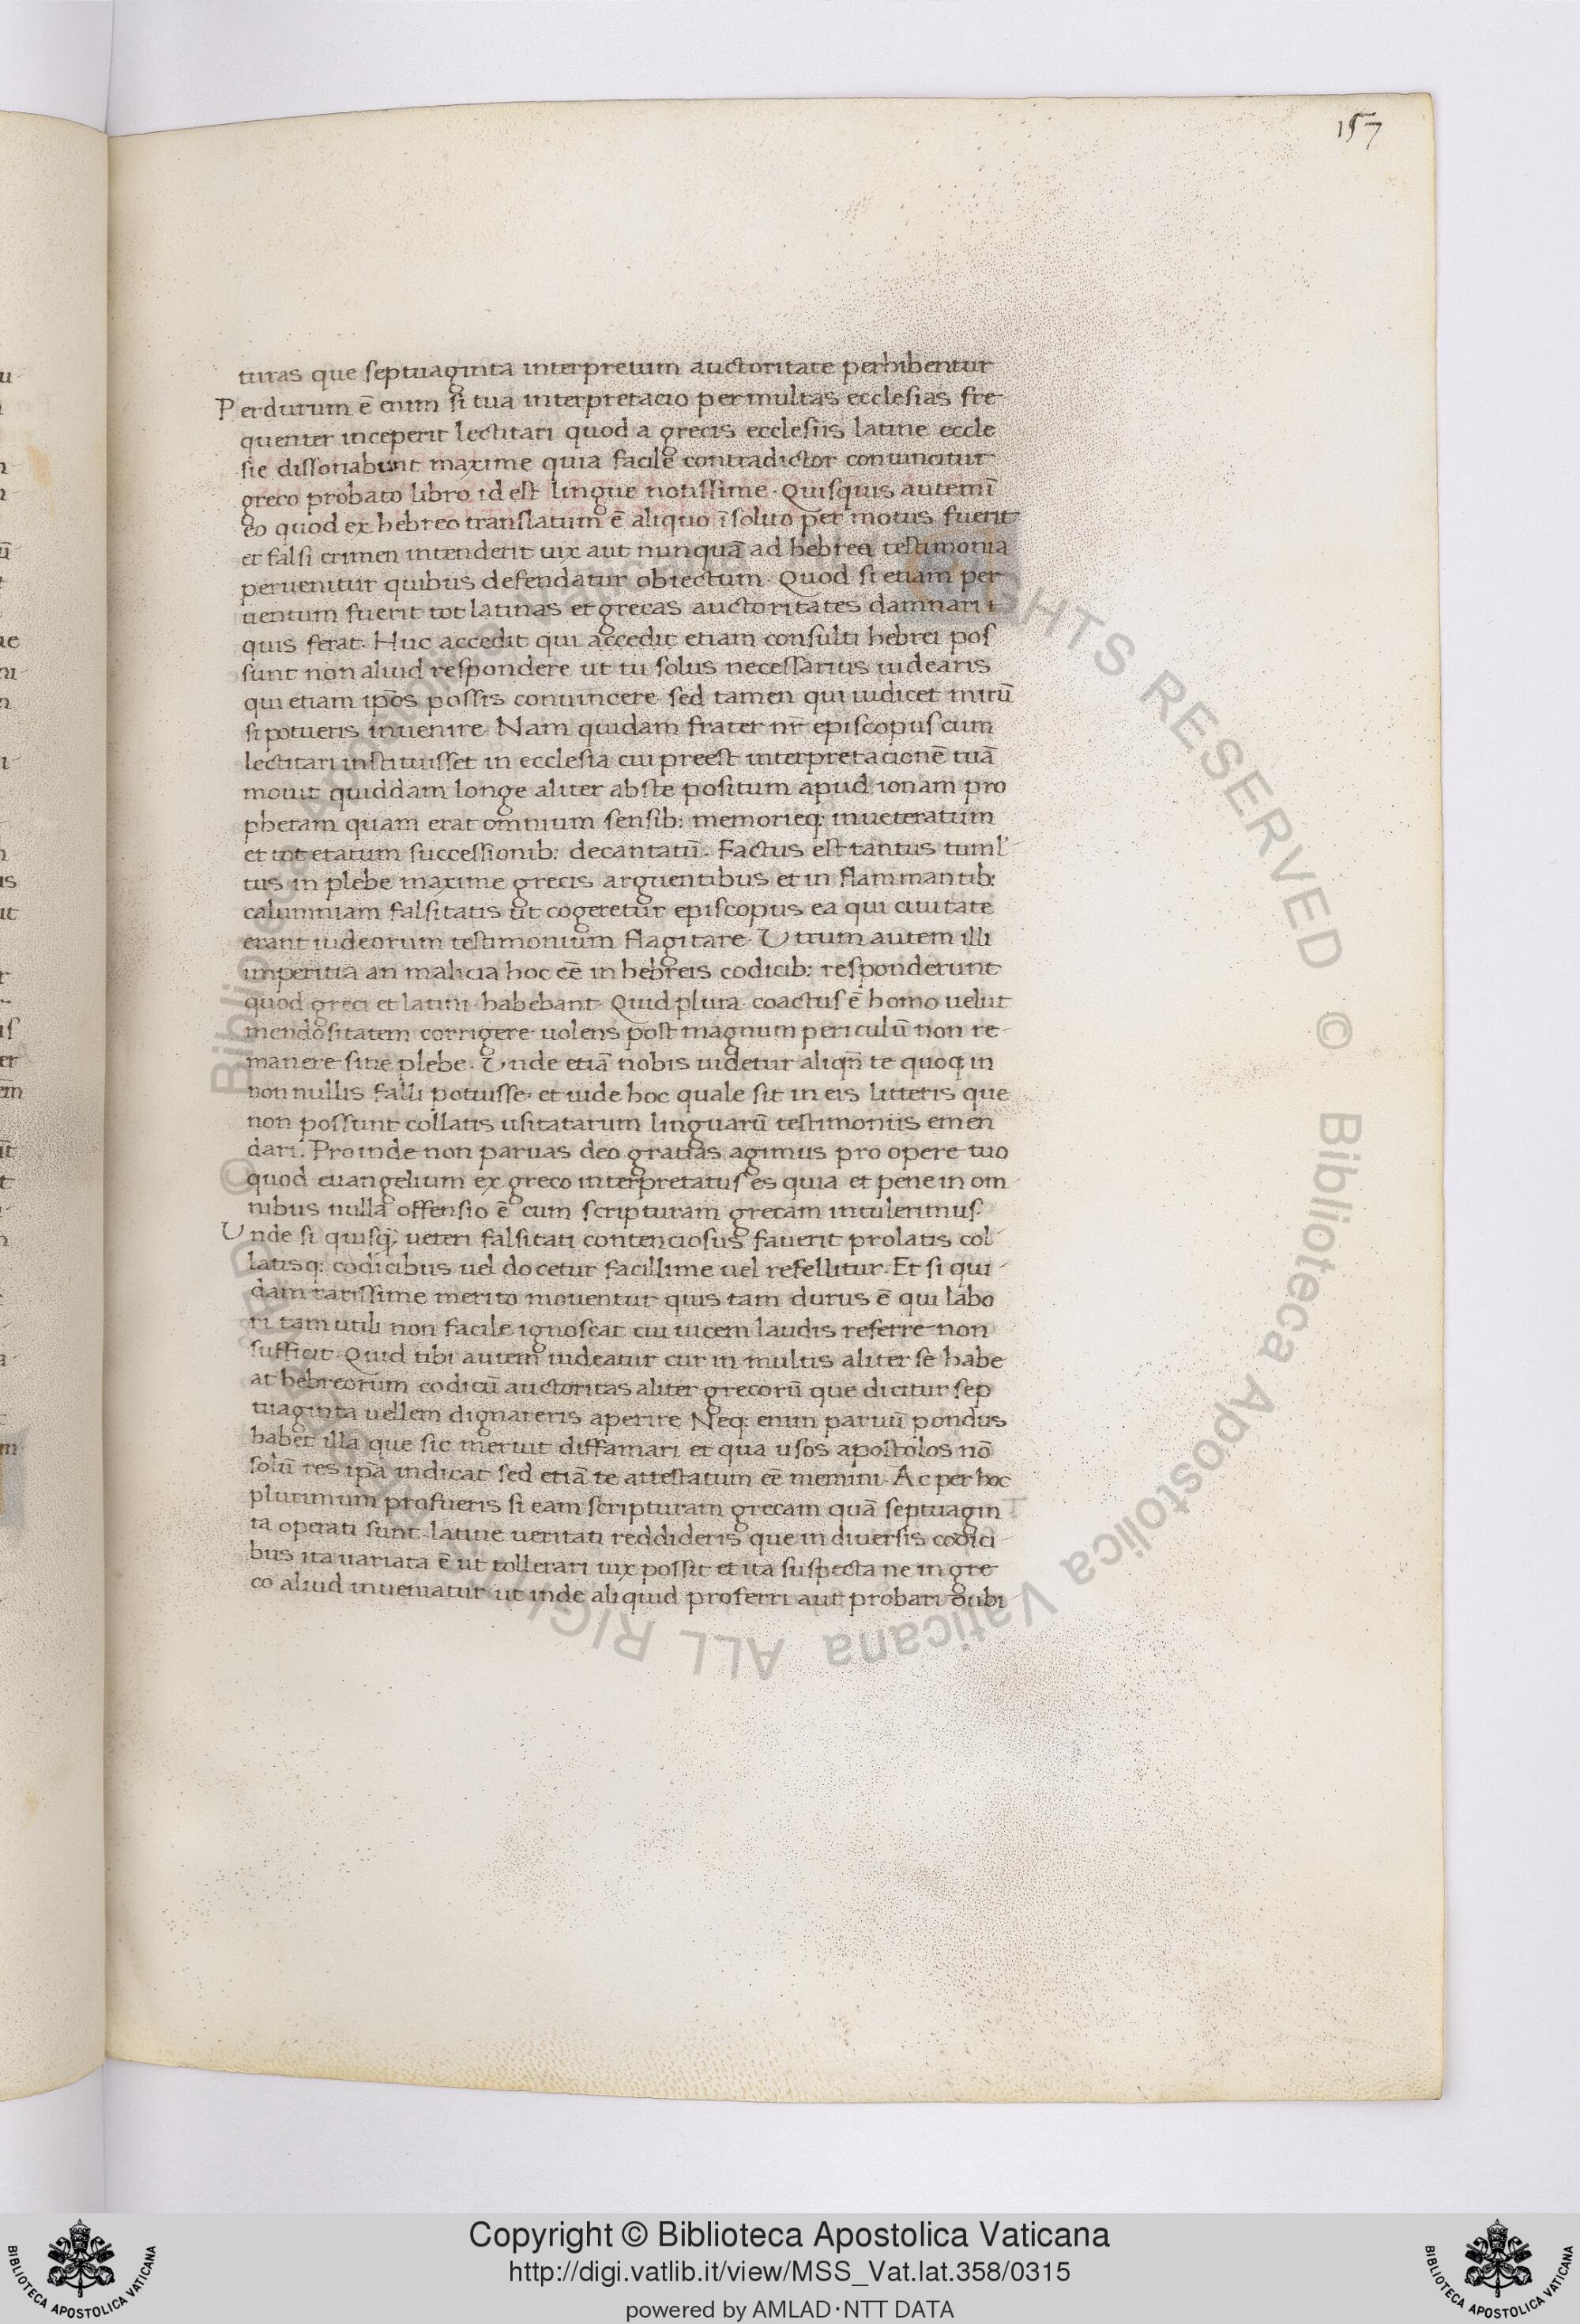 157
turas que septuaginta interpretum auctoritate perhibentur
Perdurum ē enim si tua interpretacio per multas ecclesias fre
quenter inceperit lectitari quod a grecis ecclesiis latine eccle
sie dissonabunt maxime quia facile contradictor conuincitur
greco probato libro id est lingue notissime. Quisquis autem ī
eo quod ex hebreo translatum ē aliquo īsolito per motus fuerit
et falsi crimen intenderit uix aut nunquā ad hebrea testimonia
peruenitur quibus defendatur obiectum. Quod si etiam per
uentum fuerit tot latinas et grecas auctoritates damnari
quis ferat. Huc accedit qui accedit etiam consulti hebrei pos
sunt non aliud respondere ut tu solus necessarius uidearis
qui etiam ip̄os possis conuincere sed tamen qui iudicet mirū
si potueris inuenire. Nam quidam frater nr̄ episcopus cum
lectitari instituisset in ecclesia cui preest interpretacionē tuā
mouit quiddam longe aliter abste positum apud ionam pro
phetam quam erat omnium sensib: memorieq: inueteratum
et tot etatum successionib: decantatū. Factus est tantus tuml
tus in plebe maxime grecis arguentibus et in flammantib:
calumniam falsitatis ut cogeretur episcopus ea qui ciuitate
erant iudeorum testimonium flagitare. Utrum autem illi
imperitia an malicia hoc eē in hebreis codicib: responderunt
quod greci et latini habebant. Quid plura. coactus ē homo uelut
mendositatem corrigere uolens post magnum periculū non re
manere sine plebe. Unde etiā nobis uidetur aliqn̄ te quoq; in
non nullis falli potuisse. et uide hoc quale sit in eis litteris que
non possunt collatis usitatarum linguarū testimoniis emen
dari. Proinde non paruas deo gratias agimus pro opere tuo
quod euangelium ex greco interpretatus es quia et pene in om
nibus nulla offensio ē cum scripturam grecam intulerimus.
Unde si quisq; ueteri falsitati contenciosus fauerit prolatis col
latisq: codicibus uel docetur facillime uel refellitur. Et si qui
dam rarissime merito mouentur quis tam durus ē qui labo
ri tam utili non facile ignoscat cui uicem laudis referre non
sufficit. Quid tibi autem uideatur cur in multis aliter se habe
at hebreorum codicū auctoritas aliter grecorū que dicitur sep
tuaginta uellem dignareris aperire Neq: enim paruū pondus
habet illa que sic meruit diffamari et qua usos apostolos nō
solū res ip̄a indicat sed etiā te attestatum eē memini. Ac per hoc
plurimum profueris si eam scripturam grecam quā septuagin
ta operati sunt latine ueritati reddideris que in diuersis codici
bus ita uariata ē ut tollerari uix possit et ita suspecta ne in gre
co aliud inueniatur ut inde aliquid proferri aut probari dubi
Copyright © Biblioteca Apostolica Vaticana
http://digi.vatlib.it/view/MSS_Vat.lat.358/0315
powered by AMLAD·NTT DATA